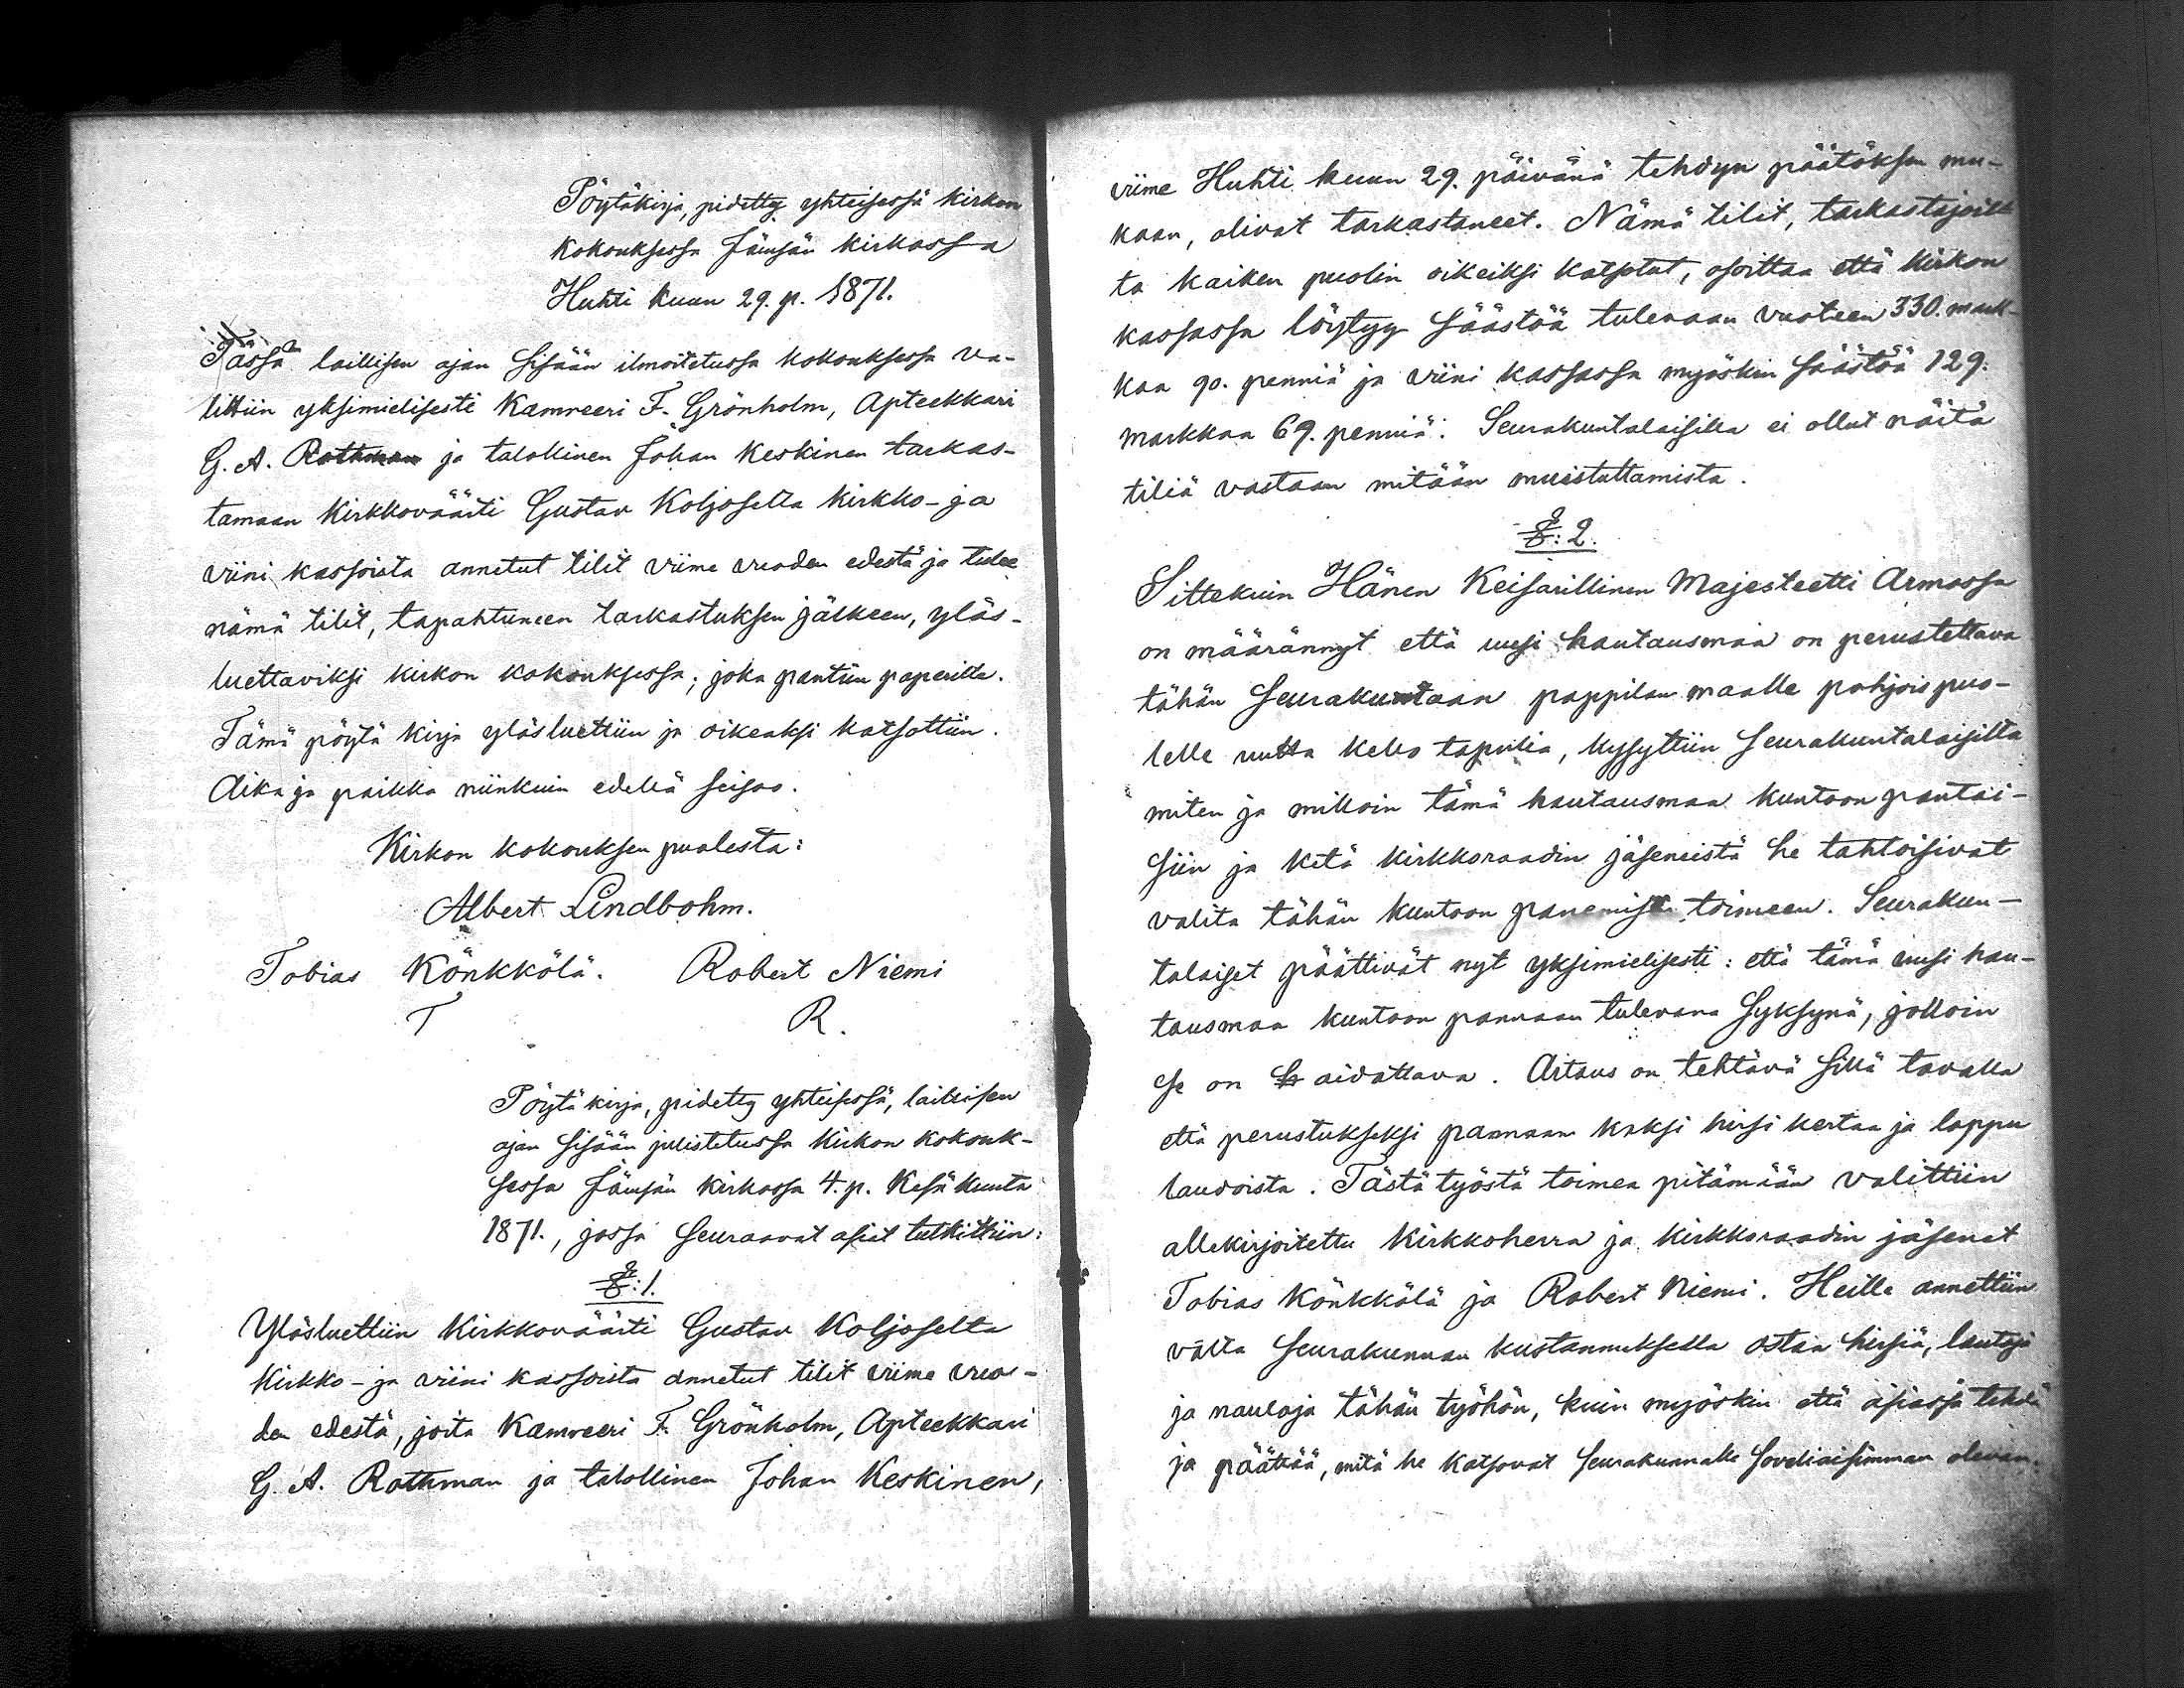 Pöytäkirja, pidetty yhteisessä kirkon
kokouksessa Jämsän kirkossa
Huhti kuun 29. p. 1871.
Tässä laillisen ajan sisään ilmoitetussa kokouksessa va-
littiin yksimielisesti Kamreeri F. Grönholm, Apteekkari
G. A. Rothman ja talollinen Johan Keskinen tarkas-
tamaan Kirkkoväärti Gustav Koljoselta kirkko- ja
viini kassoista annetut tilit viime vuoden edestä ja tulee
nämä tilit, tapahtuneen tarkastuksen jälkeen, yläs-
luettaviksi kirkon kokouksessa; joka pantiin paperille.
Tämä pöytä kirja ylösluettiin ja oikeaksi katsottiin.
Aika ja paikka niinkuin edellä seisoo.
Kirkon kokouksen puolesta:
Albert Lindbohm.
Tobias Könkkölä. Robert Niemi
T R.
Pöytä kirja, pidetty yhteisessä, laillisen
ajan sisään julistetussa kirkon kokouk-
sessa Jämsän kirkossa 4. p. Kesä kuuta
1871., jossa seuraavat asiat tutkittiin:
§: 1.
Ylösluettiin Kirkkoväärti Gustav Koljoselta
kirkko- ja viini kassoista annetut tilit viime vuo-
den edestä, joita Kamreeri F. Grönholm, Apteekkari
G. A. Rothman ja talollinen Johan Keskinen,
viime Huhti kuun 29. päivänä tehdyn päätöksen mu-
kaan, olivat tarkastaneet. Nämä tilit, tarkastajoilt
ta kaiken puolin oikeiksi katsotut, osoittaa että kirkon
kassassa löytyy säästöä tulevaan vuoteen 330. mark-
kaa 90. penniä ja viini kassassa myöskin säästöä 129.
markkaa 69. penniä. Seurakuntalaisilla ei ollut näitä
tiliä vastaan mitään muistuttamista.
§: 2.
Sittekuin Hänen Keisarillinen Majesteetti Armossa
on määrännyt että uusi hautausmaa on perustettava
tähän seurakuntaan pappilan maalle pohjois puo-
lelle uutta kello tapulia, kysyttiin seurakuntalaisilta
miten ja milloin tämä hautausmaa kuntoon pantai-
siin ja ketä kirkkoraadin jäseneistä he tahtoisivat
valita tähän kuntoon panemisen toimeen. Seurakun-
talaiset päättivät nyt yksimielisesti: että tämä uusi hau-
tausmaa kuntoon pannaan tulevana syksynä, jolloin
se on aidattava. Aitaus on tehtävä sillä tavalla
että perustukseksi pannaan kaksi hirsi kertaa ja loppu
laudoista. Tästä työstä toimea pitämään valittiin
allekirjoitettu Kirkkoherra ja kirkkoraadin jäsenet
Tobias Könkkölä ja Robert Niemi. Heille annettiin
valta seurakunnan kustannuksella ostaa hirsiä, lautoja
ja nauloja tähän työhön, kuin myöskin että asiassa tehdä
ja päättää, mitä he katsovat seurakunnalle soveliaisimman olevan.